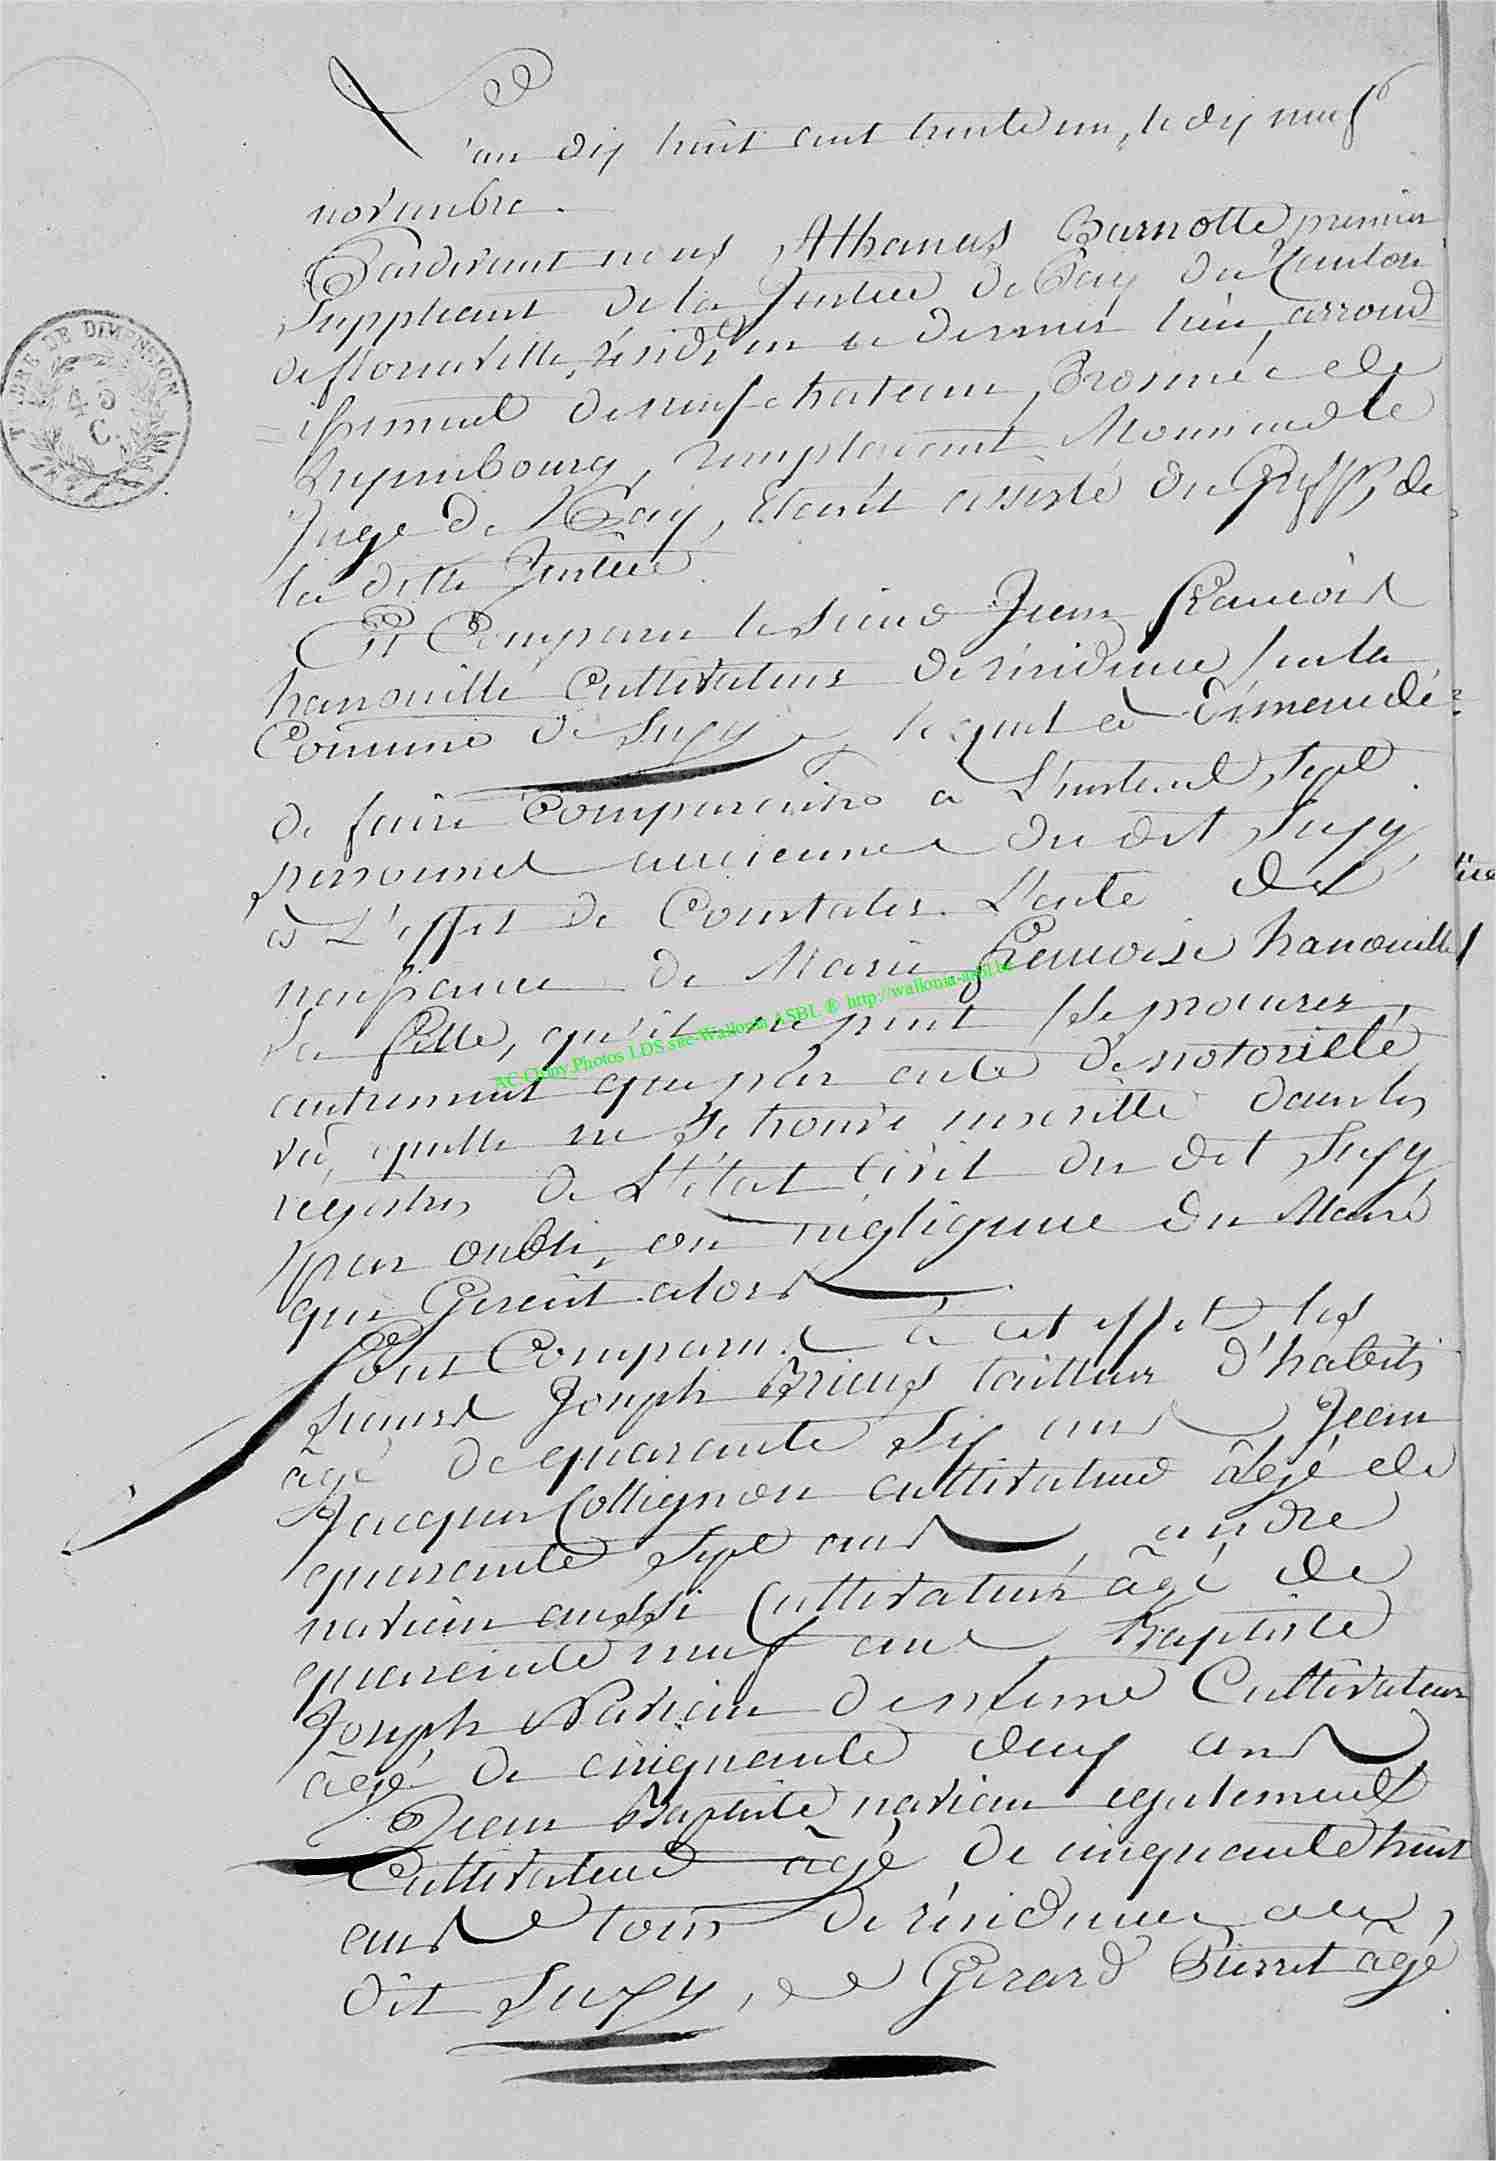 L'an dix huit cent trente un, le dix neuf
novembre.
Pardevant nous Athanas Barnotte premier
Suppleant de la Justice de Paix du Canton
de florenville, résidan en ce dernier lieu, arrond=
=issement de neufchateau, Province de
Luxembourg, remplacant Monsieur le
Juge de Paix, étant assisté du Greffr, de
la ditte Justice.
Est Comparu le Sieur Jean François
hanouille Cultivateur de résidence sur la
Commune de Suxy, lequel à démendé
de faire Comparaitre a L'instend Sept
personnes anciennes du dit Suxy,
à L'effet de Constater L'acte de
naissance de Marie françoise hanouille
sa fille, qu'il ne peut se procurer
autrement que par acte de notoriété,
vû, quelle ne se trouve inscritte dans les
registres de L'état Civil du dit Suxy
par oubli, ou négligence du Maire
qui Gérait alors
Sont Comparus à cet effet les
Sieurs Joseph tailleur d'habits
âgé de quarante Six ans Jean
Jacques Collignon cultivateur âgé de
quarante Sept ans, andre
naviau aussi Cultivateur âgé de
quarante neuf ans, Baptiste
Joseph Naviau de même Cultivateur
âgé de cinquante deux ans
Jean Baptiste naviau egalement
Cultivateur âgé de cinquante huit
ans tous de résidence au,
dit Suxy, et Gerard Pierret âgé
TIMBRE DE DIMENSION
45
C.
AC Cluny Photos LDS site-Wallonia ASBL ® http://wallonia-asbl.be